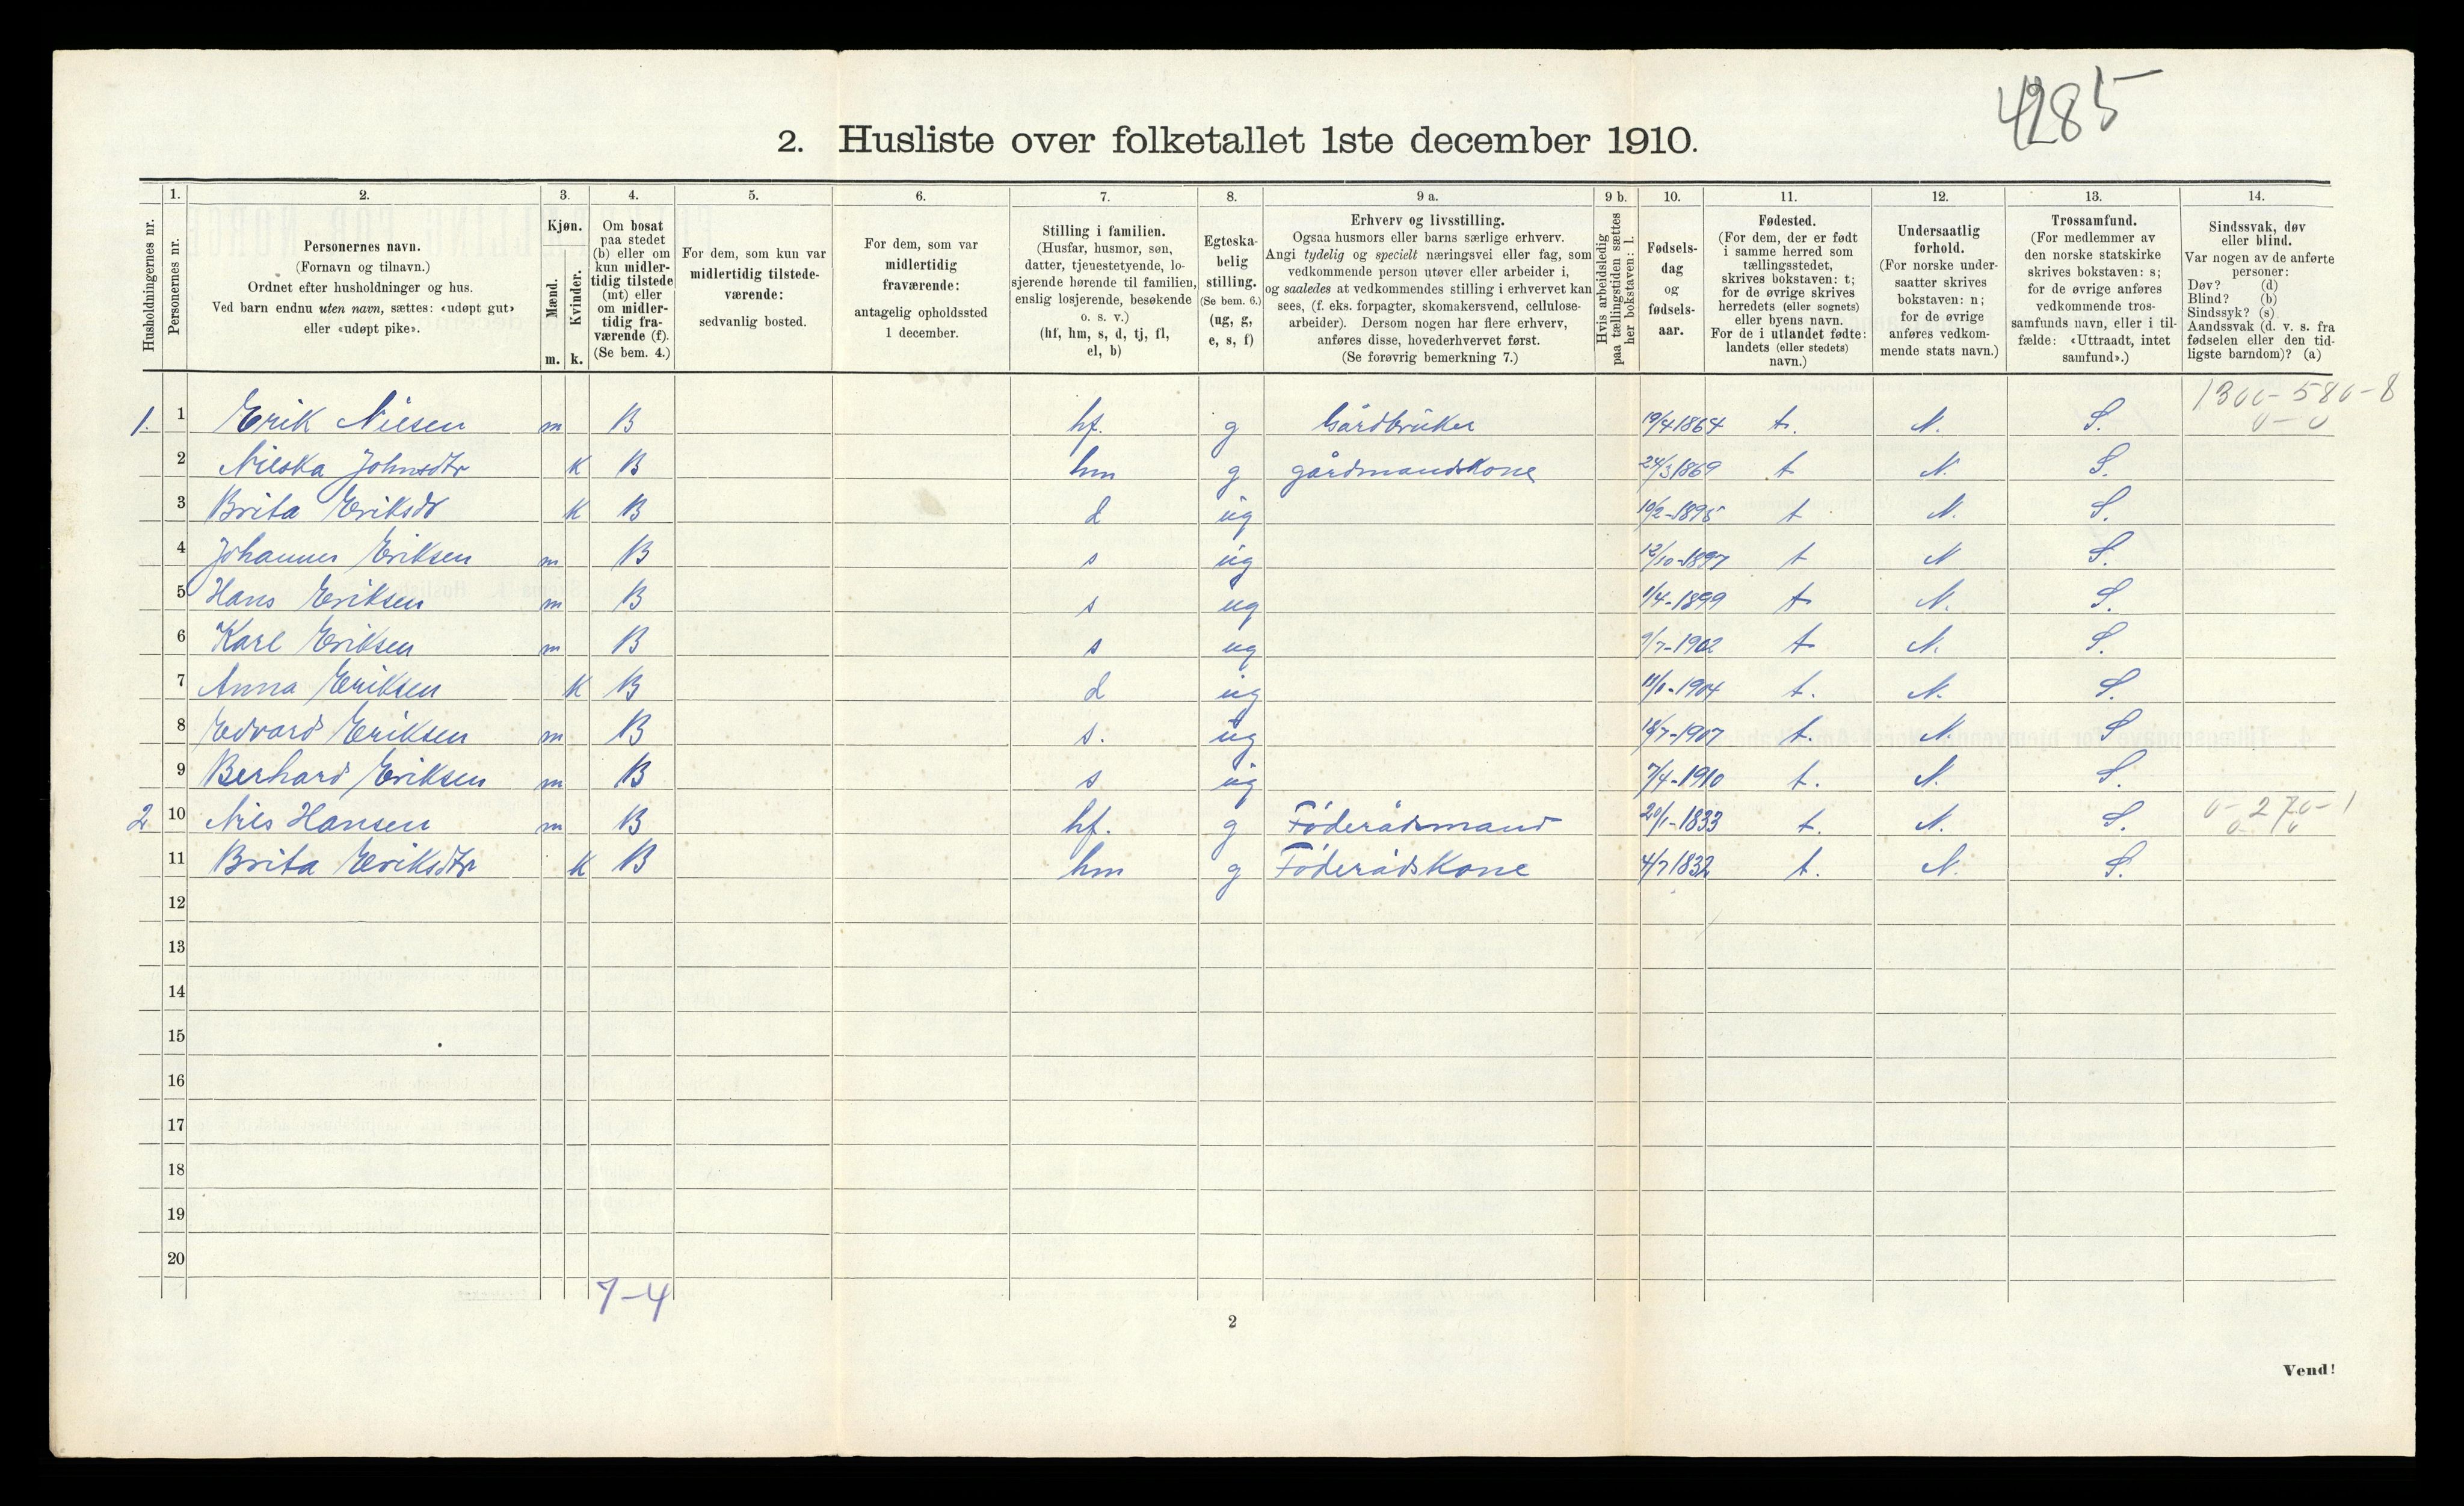 4285
2. Husliste over folketallet 1ste december 1910.
Husholdningernes nr.
1.
Personernes nr.
2.
Personernes navn.
(Fornavn og tilnavn.)
Ordnet efter husholdninger og hus.
Ved barn endnu uten navn, sættes: «udøpt gut»
eller «udøpt pike».
3.
Kjøn.
Mænd.
Kvinder.
m. k.
4.
Om bosat
paa stedet
(b) eller om
kun midler-
tidig tilstede
(mt) eller
om midler-
tidig fra-
værende (f).
(Se bem. 4.)
5.
For dem, som kun var
midlertidig tilstede-
værende:
sedvanlig bosted.
6.
For dem, som var
midlertidig
fraværende:
antagelig opholdssted
1 december.
7.
Stilling i familien.
(Husfar, husmor, søn,
datter, tjenestetyende, lo-
sjerende hørende til familien,
enslig losjerende, besøkende
o. s. v.)
(hf, hm, s, d, tj, fl,
el, b)
8.
Egteska-
belig
stilling.
(Se bem. 6.)
(ug, g,
e, s, f)
9 a.
Erhverv og livsstilling.
Ogsaa husmors eller barns særlige erhverv.
Angi tydelig og specielt næringsvei eller fag, som
vedkommende person utøver eller arbeider i,
og saaledes at vedkommendes stilling i erhvervet kan
sees, (f. eks. forpagter, skomakersvend, cellulose-
arbeider). Dersom nogen har flere erhverv,
anføres disse, hovederhvervet først.
(Se forøvrig bemerkning 7.)
9 b.
Hvis arbeidsledig
paa tællingstiden sættes
her bokstaven: l.
10.
Fødsels-
dag
og
fødsels-
aar.
11.
Fødested.
(For dem, der er født
i samme herred som
tællingsstedet,
skrives bokstaven: t;
for de øvrige skrives
herredets (eller sognets)
eller byens navn.
For de i utlandet fødte:
landets (eller stedets)
navn.)
12.
Undersaatlig
forhold.
(For norske under-
saatter skrives
bokstaven: n;
for de øvrige
anføres vedkom-
mende stats navn.)
13.
Trossamfund.
(For medlemmer av
den norske statskirke
skrives bokstaven: s;
for de øvrige anføres
vedkommende tros-
samfunds navn, eller i til-
fælde: «Uttraadt, intet
samfund».)
14.
Sindssvak, døv
eller blind.
Var nogen av de anførte
personer:
Døv? (d)
Blind? (b)
Sindssyk? (s)
Aandssvak (d. v. s. fra
fødselen eller den tid-
ligste barndom)? (a)
1. 1 Erik Nilsen m B hf. g Gårdbruker 19/4 1864 t. N. S. 1300-580-8
0-0
2 Nilska Johnsdtr k B hm g gårdmandskone 24/3 1869 t N. S.
3 Brita Eriksdr k B d ug 10/2-1895 t N. S.
4 Johannes Eriksen m B s ug 12/10-1897 t N S.
5 Hans Eriksen m B s ug 1/4-1899 t N. S.
6 Karl Eriksen m B s ug 9/7-1902 t N. S.
7 Anna Eriksen k B d ug -1904 t. N. S.
8 Edvard Eriksen m B s. ug 18/7-1907 t. N. S
9 Berhard Eriksen m B s ug 7/4-1910 t. N. S.
2 10 Nils Hansen m B hf. g Føderådsmand 20/1-1833 t. N. S. 0-270-1
0-0
11 Brita Eriksdtr k B hm g Føderådskone 4/7 1832 t. N. S.
12
13
14
15
16
17
18
19
20
7-4
2
Vend!